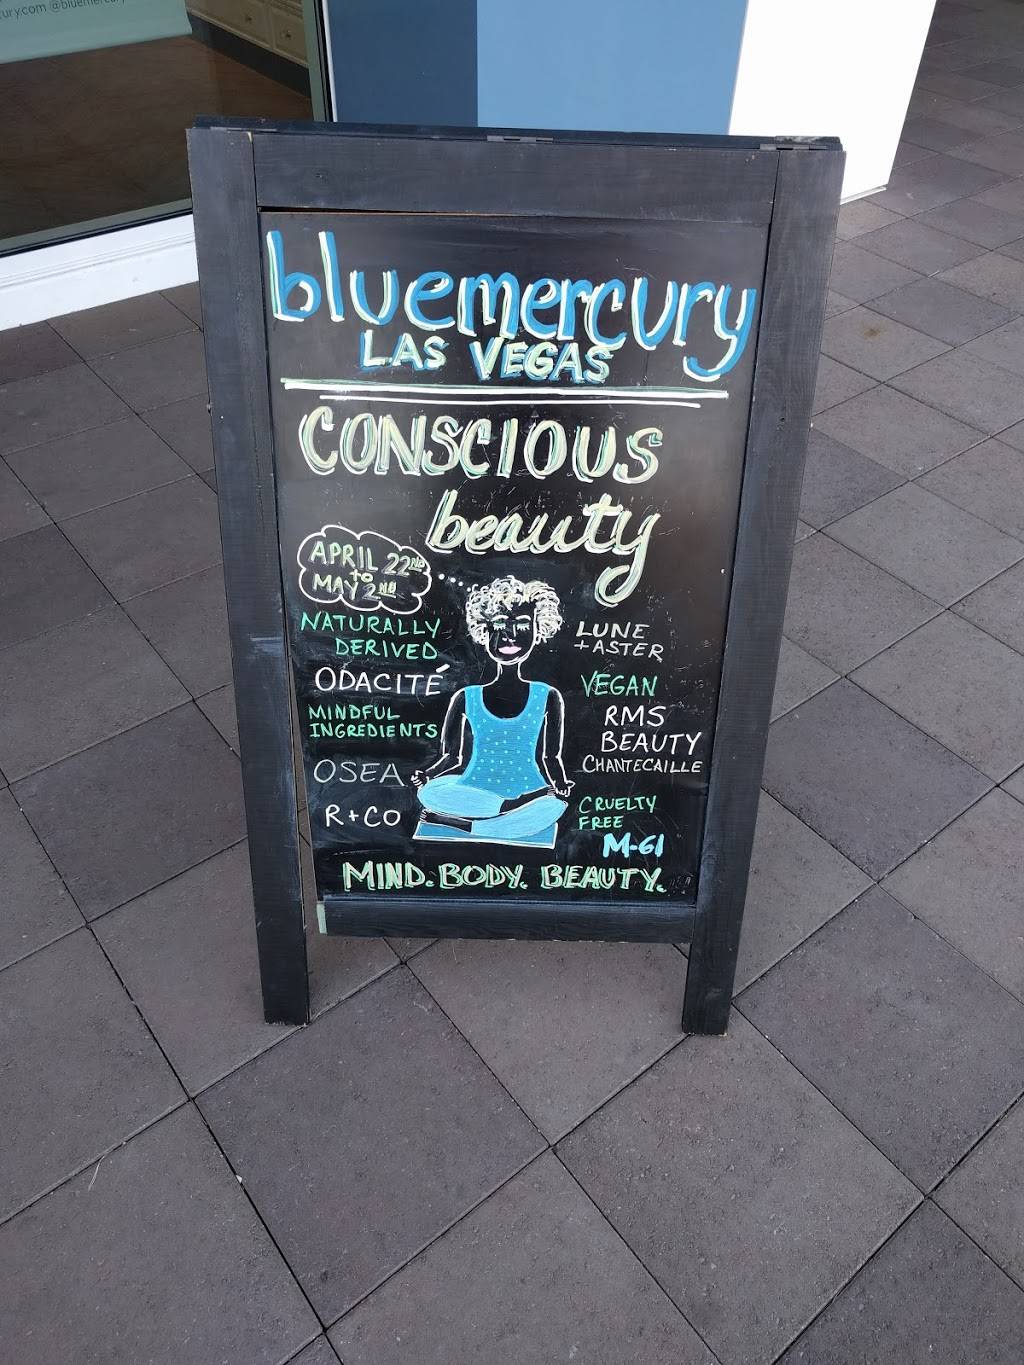 cury.com @bluemercury
bluemercury
LAS VEGAS
CONSCIOUS
beauty
APRIL 22ND
to
MAY 2ND
NATURALLY
DERIVED
ODACITÉ
MINDFUL
INGREDIENTS
OSEA
R+CO
LUNE
+ASTER
VEGAN
RMS
BEAUTY
CHANTECAILLE
CRUELTY
FREE
M-61
MIND. BODY. BEAUTY.